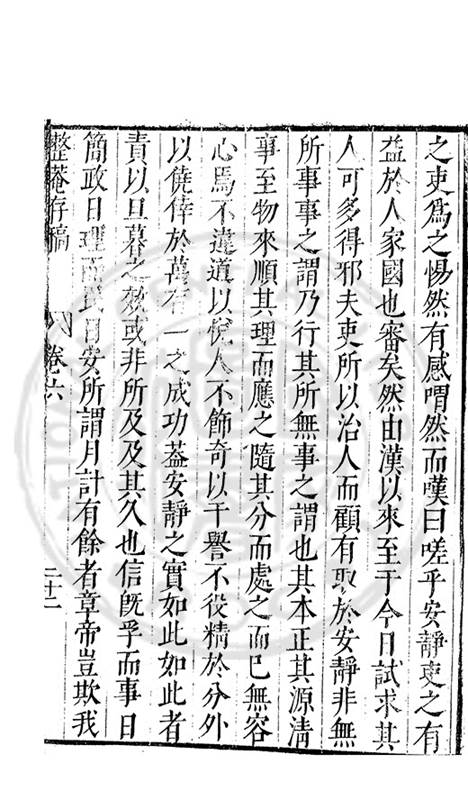 之吏爲之惕然有感喟然而嘆曰嗟乎安靜吏之有
益於人家國也審矣然由漢以來至于今日試求其
人可多得邪夫吏所以治人而顧有取於安靜非無
所事事之謂乃行其所無事之謂也其本正其源淸
事至物來順其理而應之隨其分而處之而已無容
心焉不違道以悅人不飾奇以干譽不役精於分外
以僥倖於萬有一之成功葢安靜之實如此如此者
責以旦暮之效或非所及及其久也信旣孚而事日
簡政日理而民日安所謂月計有餘者章帝豈欺我
整菴存稿 卷六 二十二